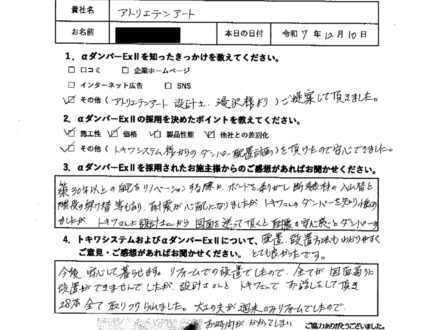 貴社名 アトリエテンアート
お名前 本日の日付 令和 7年 12月 10日
1．αダンパーExⅡを知ったきっかけを教えてください。
□ 口コミ □ 企業ホームページ
□ インターネット広告 □ SNS
☑ その他（アトリエテンアート 設計士、滝沢様より）ご提案して頂きました。
2．αダンパーExⅡの採用を決めたポイントを教えてください。
☑ 施工性 ☑ 価格 ☑ 製品性能 ☑ 他社との差別化
☑ その他（トキワシステム様からのダンパー配置計画）を頂けたので安心できました。
3．αダンパーExⅡを採用されたお施主様からのご感想があればお聞かせください。
築30年以上の リノベーションする際に、ボードを剥がし断熱材の入れ替え
耐震が心配になりましたが トキワさんのダンパーを知り
ましたが トキワさんに設計士さんから 図面を送って頂く と耐震の安心感とダンパーの
4．トキワシステムおよびαダンパーExⅡについて、配置、設置方法もわかりやすく
ご意見・ご感想があればお聞かせください。とても良かったです。
今後、安心して暮らせます。リフォームでの設置でしたので、全てが図面通りに
設置ができませんでしたが、設計士さんと トキワさんで お話しして頂き
28本全て取りつけられました。大工の夫が週末のみリフォームでしたので、
お時間が かかってしまい
ご協力ありがとうございました。